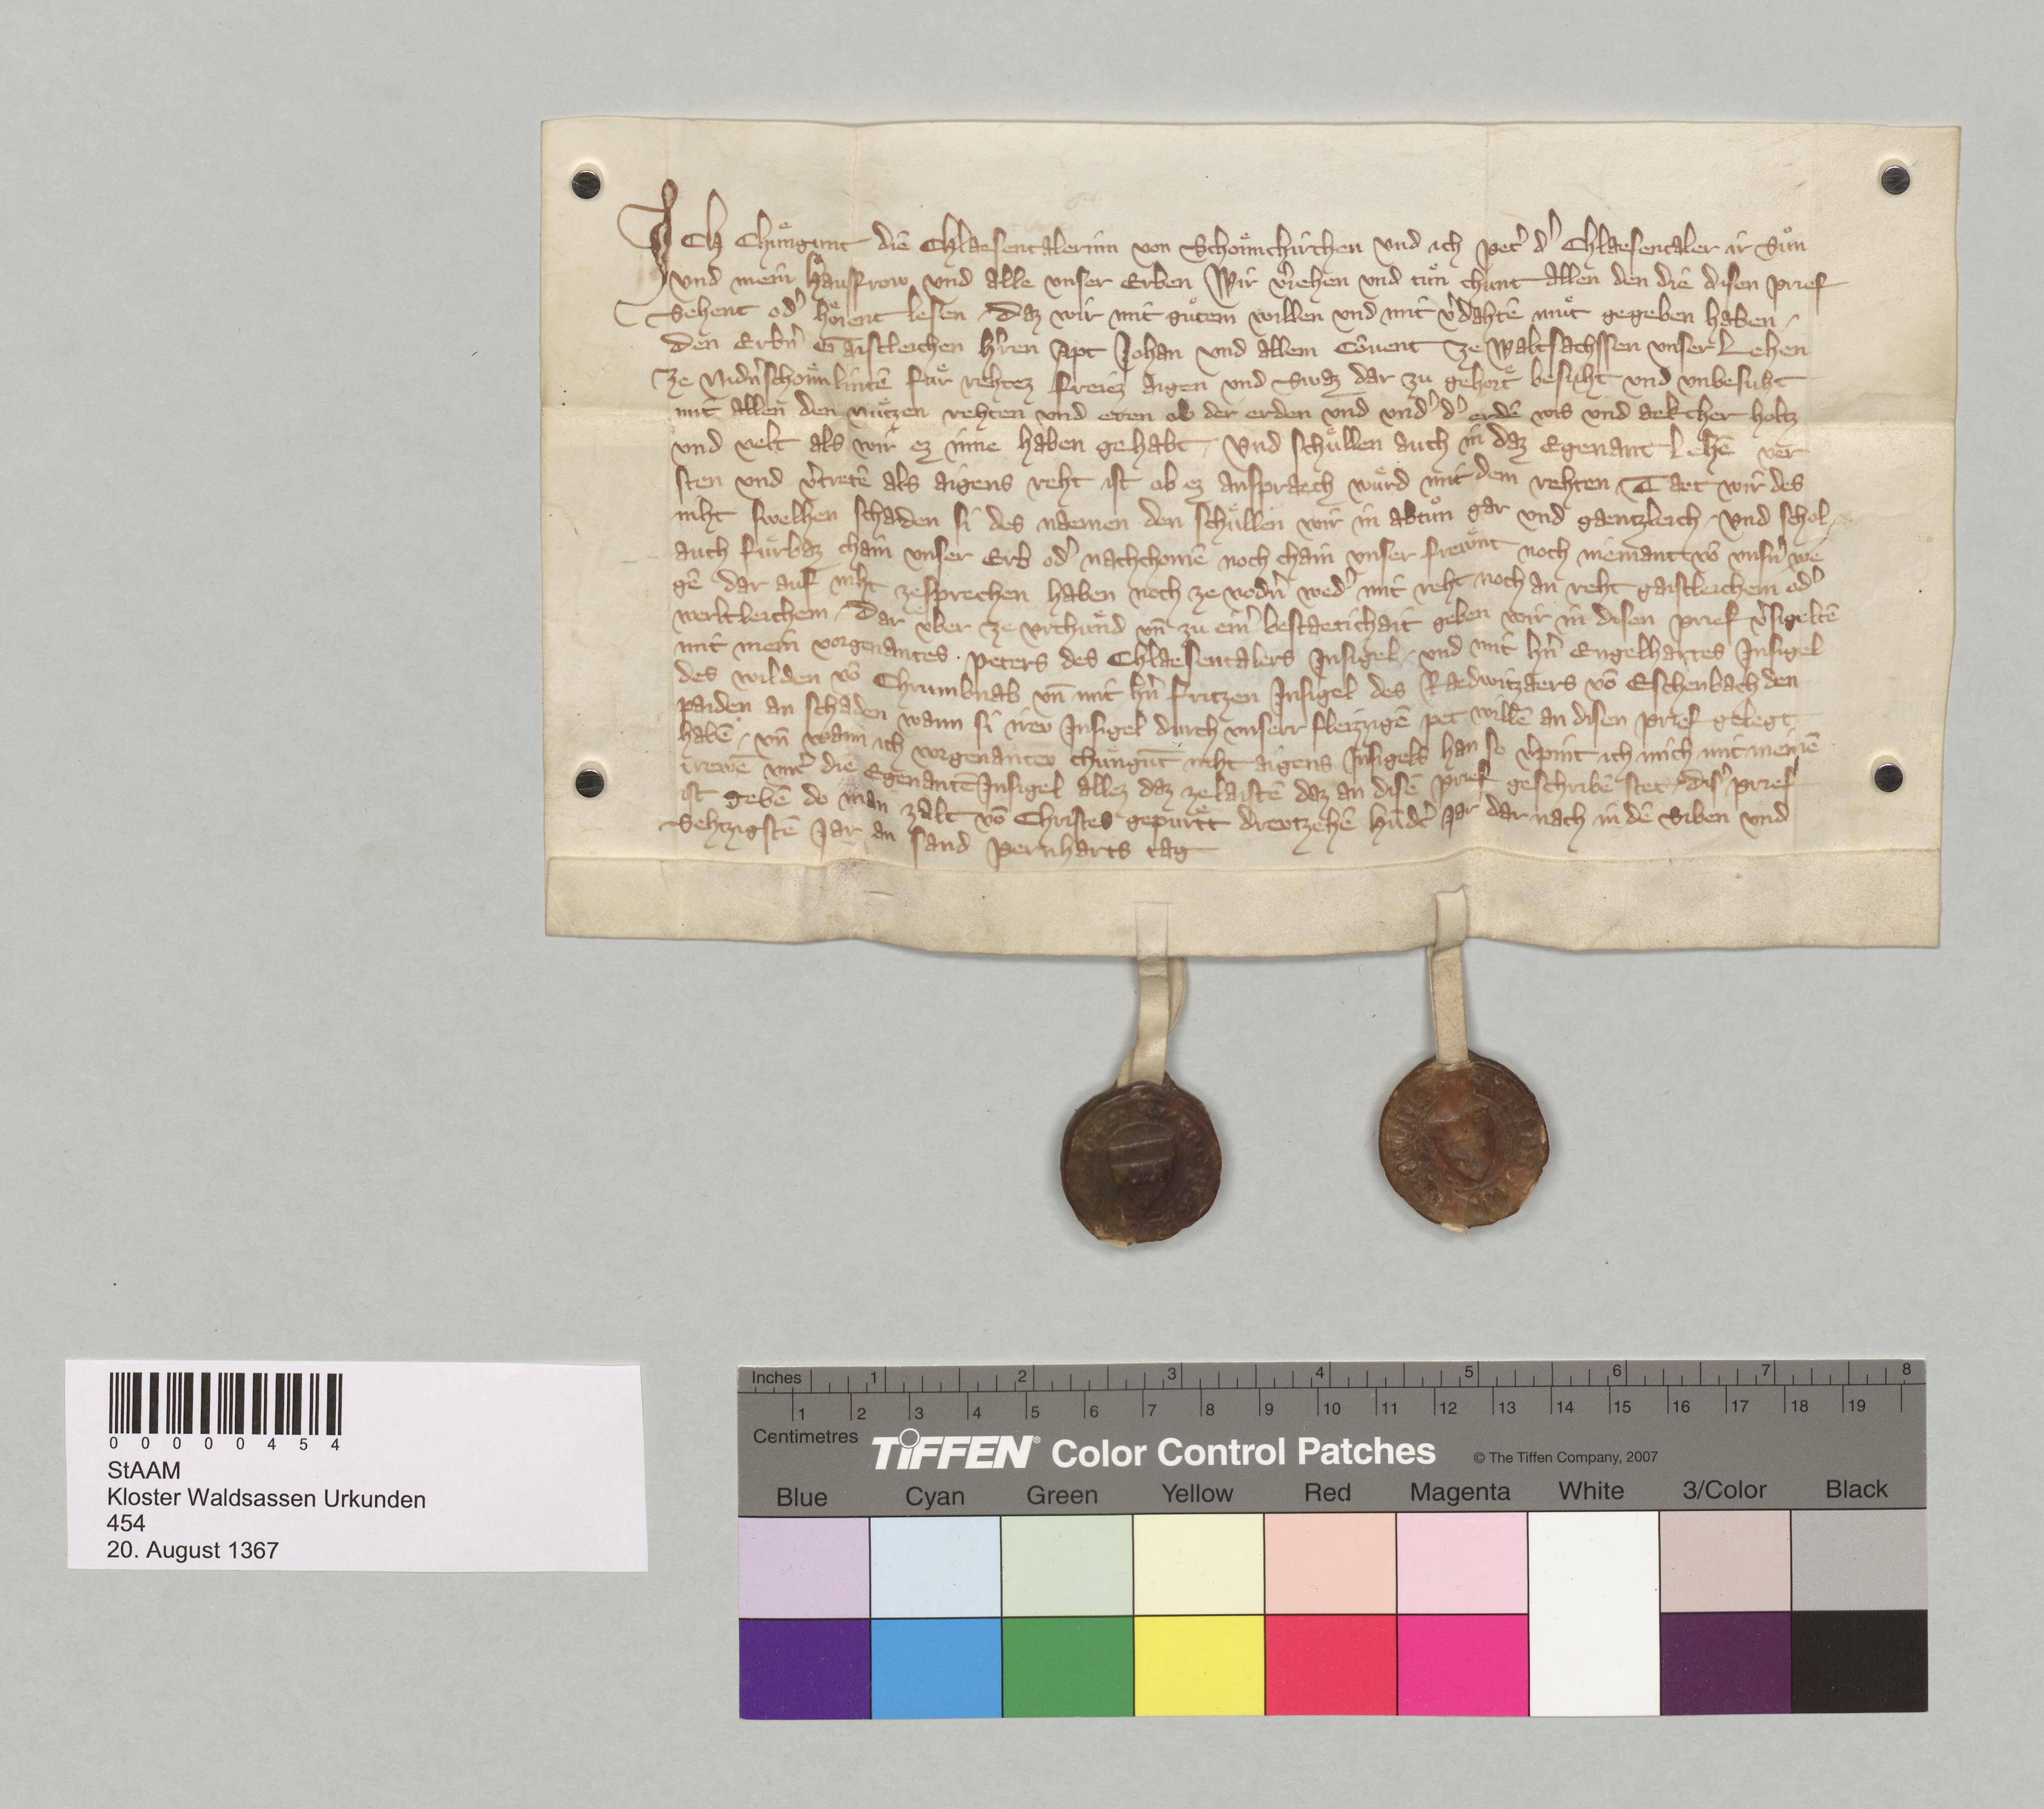 Ich Chuͤngunt die Chlaesentalerinn von Schoͤnnchirchen und ich Pet̾ d̾ Chlaesentaler ir Suͦn
und mein Hausfrow und alle unser Erben Wir v̾iehen und tuͦn chunt allen den die disen prief
Sehent od̾ hoͤrent lesen daz wir mit guͦtem willen und mit v̾dahtē muͦt gegeben haben
den Erbn̄ Gaistleichen h̾ren Apt Johan und allem Cōvent ze Waltsachssen unser Lehen
ze Nidn̄schoͤnlintē fuͤr rehtez freiez aigen und Swaz dar zu gehort besuht und unbesuht
mit allen den nuͤtzen rehten und eren ob der erden und und̾ d̾ erdē wis und aekcher holtz
und velt als wir ez inne haben gehabt Und schuͤllen auch in daz Egenant Lehē ver
sten und v̾tretē als aigens reht ist ob ez ansprach wuͤrd mit dem rehten Taet wir des
niht swelhen schaden si des naemen den schuͤllen wir in abtuͦn gar und gaentzleich Und schol
auch fuͤrbaz chain unser Erb od̾ nachchomē noch chain unser frewnt noch niemant vō unsn̄ we
gē dar auf niht zesprechen haben noch ze vodn̄ wed̾ mit reht noch an reht gaistleichem od̾
werltleichem Dar uͤber ze urchuͤnd un̄ zu ein̾ bestaetichait geben wir in disen prief v̾sigeltē
mit mein vorgenantes Peters des Chlaesentalers Insigel und mit hn̄ Engelhartes Insigel
des wilden vō Chrumbnab un̄ mit hn̄ Fritzen Insigel des Raedwitzaers vō Eschenbach den
paiden an schaden wann si irev Insigel durch unserr fleizzigē pet willē an disen prief gelegt
habē un̄ wann ich vorgenantev Chuͤngūt niht aigens Insigels han so v̾pint ich mich mit meinē
trewē unt̾ die Egenantē Insigel allez daz zelaistē daz an disē prief geschribē stet dis̾ prief
ist gebē do man zalt vō Christes gepurtt drevtzehē hūd̾t jar dar nach in dē Siben und
Sehtzigstē Jar an sand Pernharts tag
0 0 0 0 0 4 5 4
StAAM
Kloster Waldsassen Urkunden
454
20. August 1367
Inches 1 2 3 4 5 6 7 8
1 2 3 4 5 6 7 8 9 10 11 12 13 14 15 16 17 18 19
Centimetres
TIFFEN® Color Control Patches © The Tiffen Company, 2007
Blue Cyan Green Yellow Red Magenta White 3/Color Black